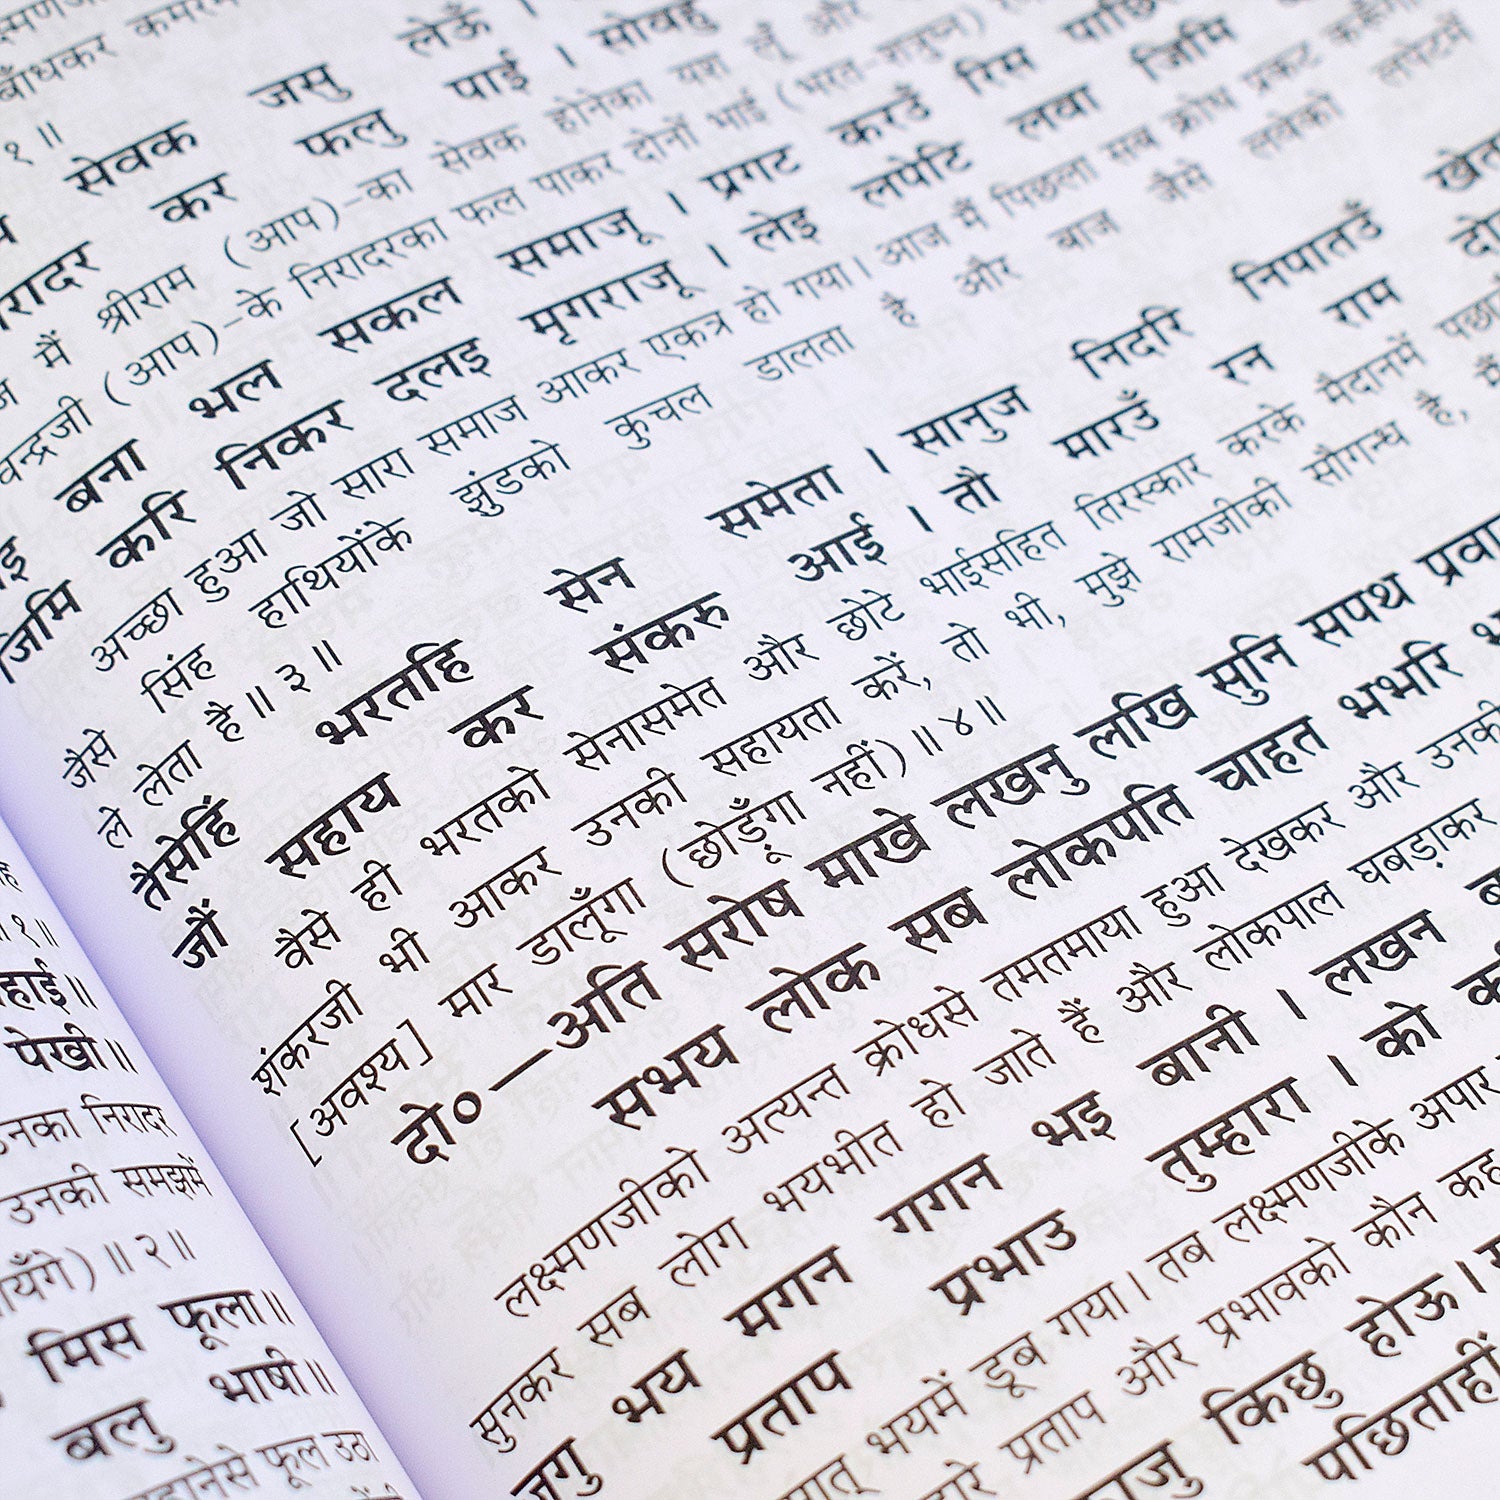 बाँधकर
१॥
सेवक जसु लेऊँ । सोवहुँ
कर फलु पाई ।
मैं श्रीराम (आप)-का सेवक होनेका यश लूँ और
(आप)-के निरादरका फल पाकर दोनों भाई (भरत-शत्रुघ्न)
बना भल सकल समाजू । प्रगट करउँ रिस
जिमि करि निकर दलइ मृगराजू । लेइ लपेटि लवा जिमि
अच्छा हुआ जो सारा समाज आकर एकत्र हो गया। आज मैं पिछला सब क्रोध प्रकट
जैसे सिंह हाथियोंके झुंडको कुचल डालता है और बाज जैसे लवेको लपेटमें
ले लेता है॥ ३॥
तैसेहिं भरतहि सेन समेता । सानुज निदरि निपातउँ
जौं सहाय कर संकरु आई । तौ मारउँ रन राम
वैसे ही भरतको सेनासमेत और छोटे भाईसहित तिरस्कार करके मैदानमें
शंकरजी भी आकर उनकी सहायता करें, तो भी, मुझे रामजीकी सौगन्ध है,
[अवश्य] मार डालूँगा (छोड़ूँगा नहीं)॥ ४॥
दो०—अति सरोष माखे लखनु लखि सुनि सपथ
सभय लोक सब लोकपति चाहत भभरि
लक्ष्मणजीको अत्यन्त क्रोधसे तमतमाया हुआ देखकर और उनकी
सुनकर सब लोग भयभीत हो जाते हैं और लोकपाल घबड़ाकर
भय मगन गगन भइ बानी । लखन
प्रताप प्रभाउ तुम्हारा । को
भयमें डूब गया। तब लक्ष्मणजीके अपार
प्रताप और प्रभावको कौन
किछु होऊ।
पछिताहीं
१॥
पेखी॥
निरादर
उनकी समझमें
॥ २॥
मिस फूला॥
बलु भाषी॥
फूल उठा